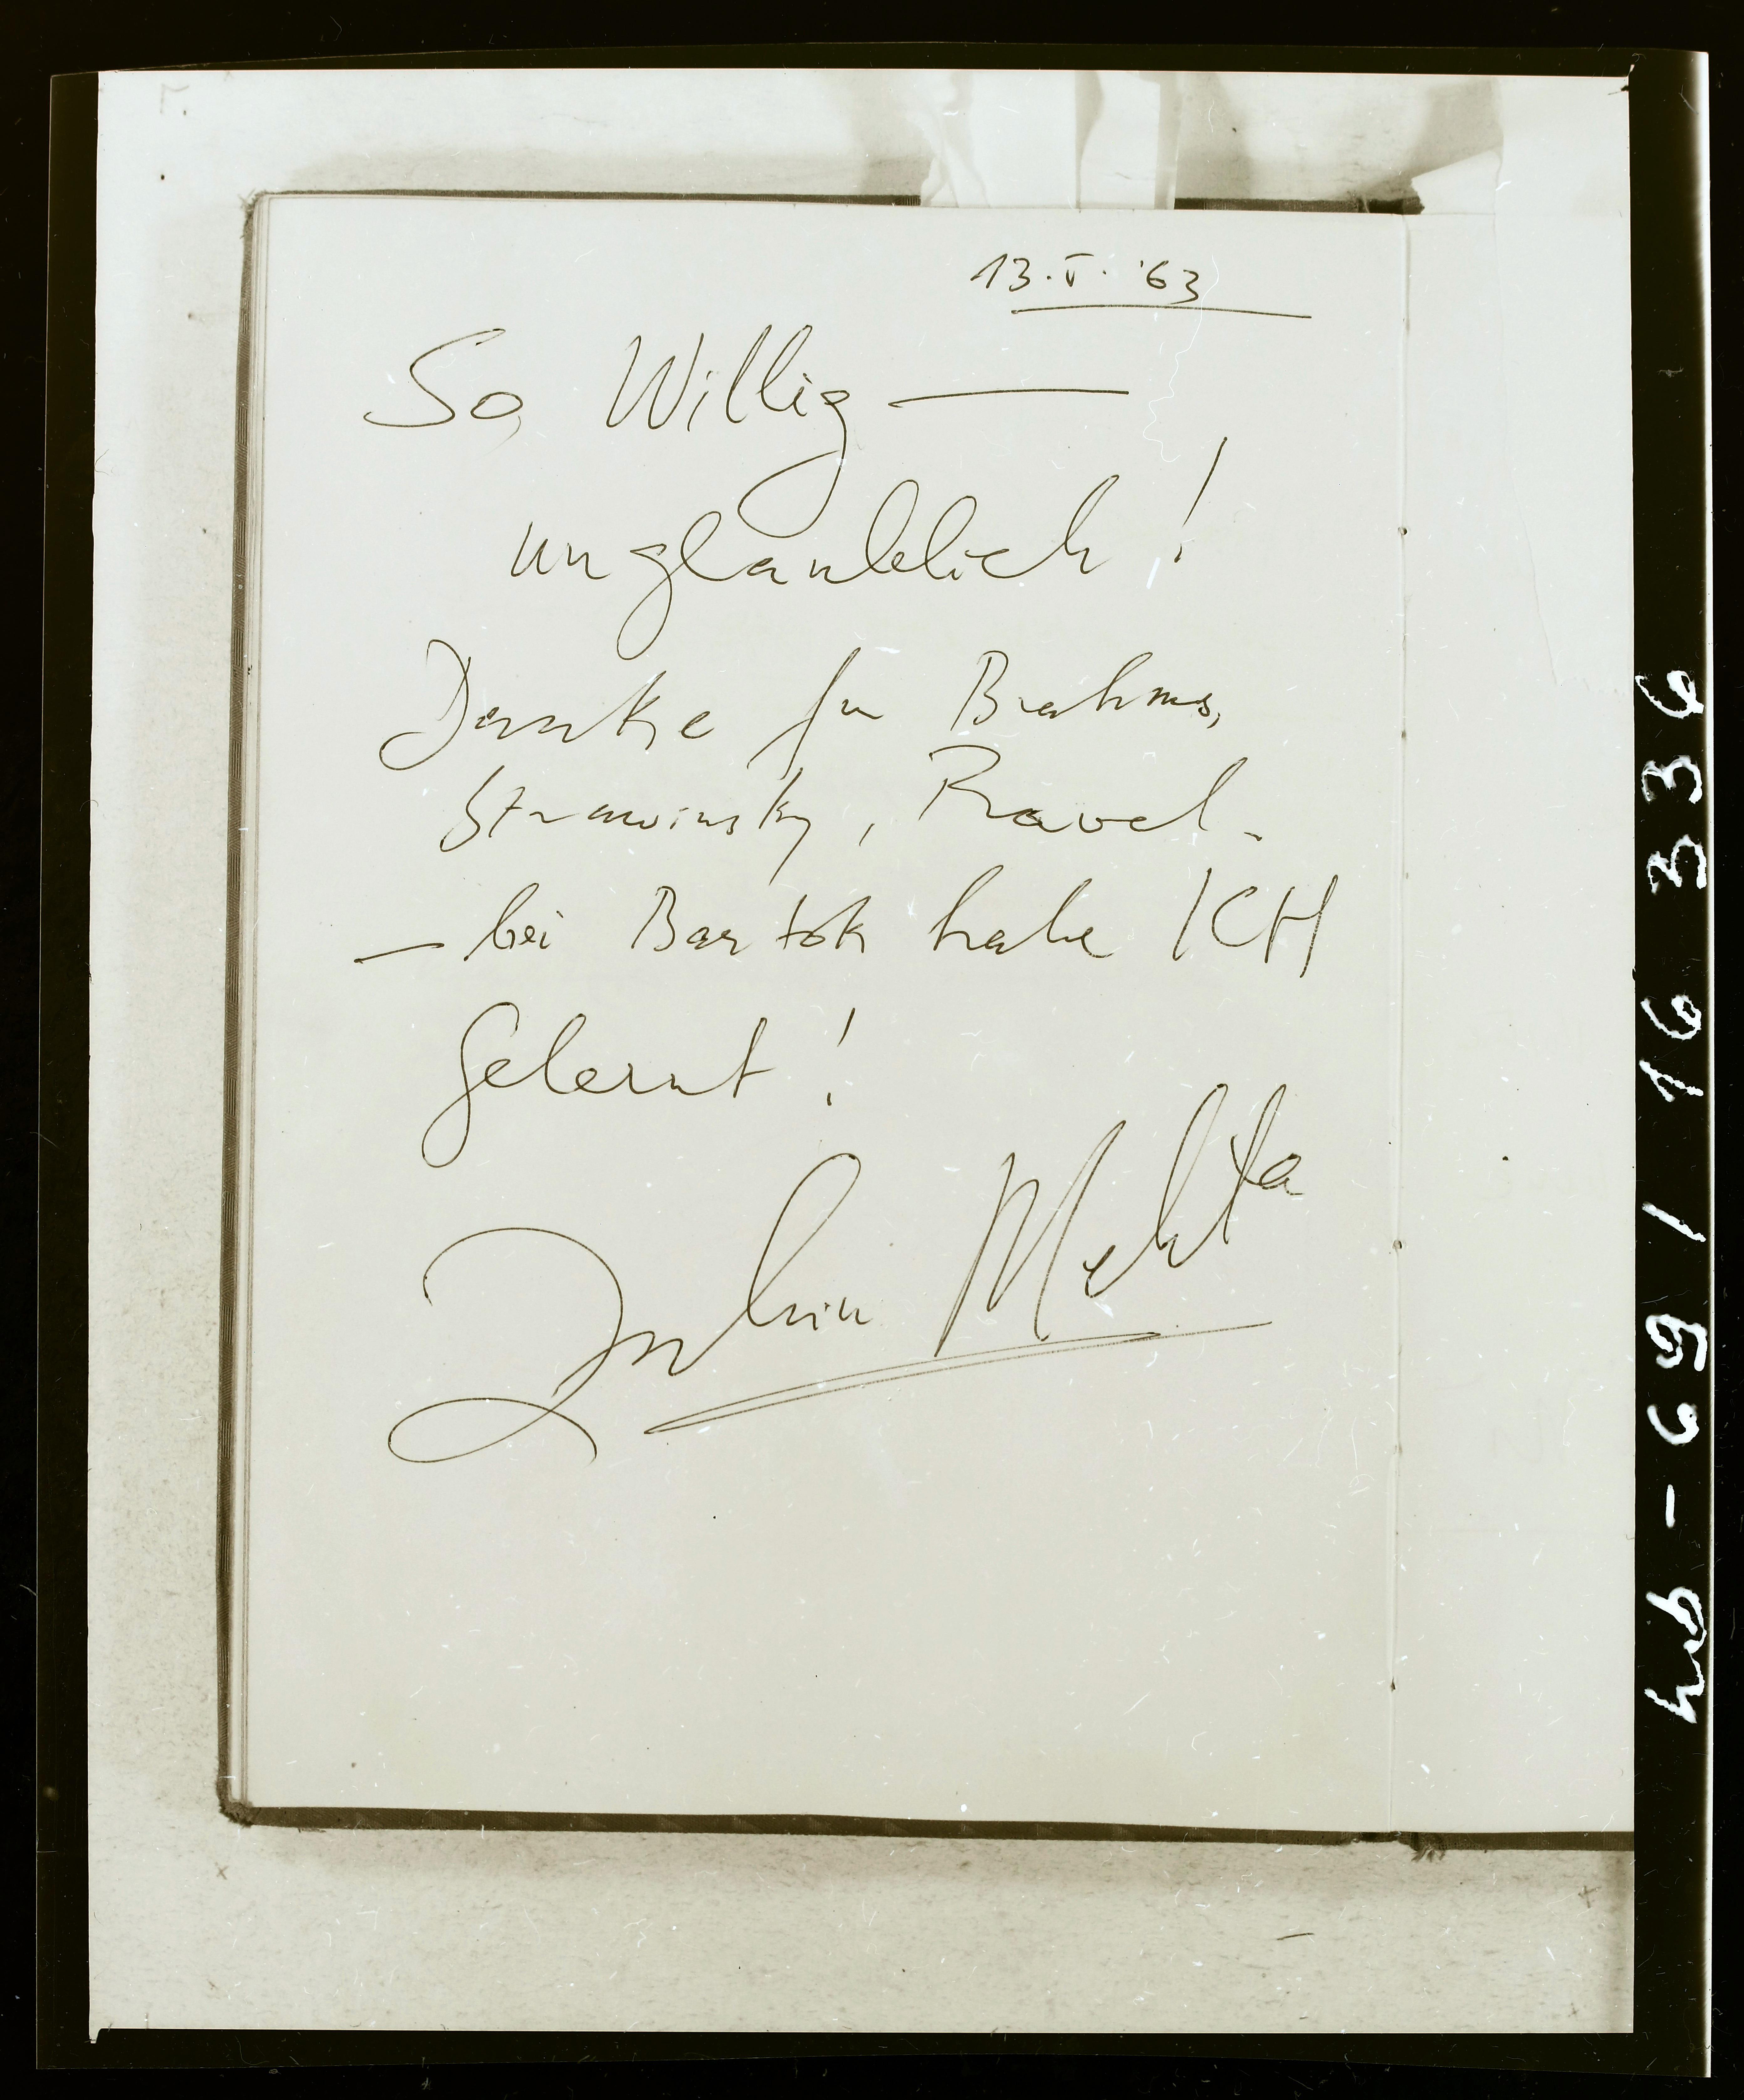 13.V. '63
So Willig —
unglaublich!
Danke für Brahms,
Strawinsky, Ravel.
— bei Bartok habe ICH
gelernt!
Zubin Mehta
hb-691 16336